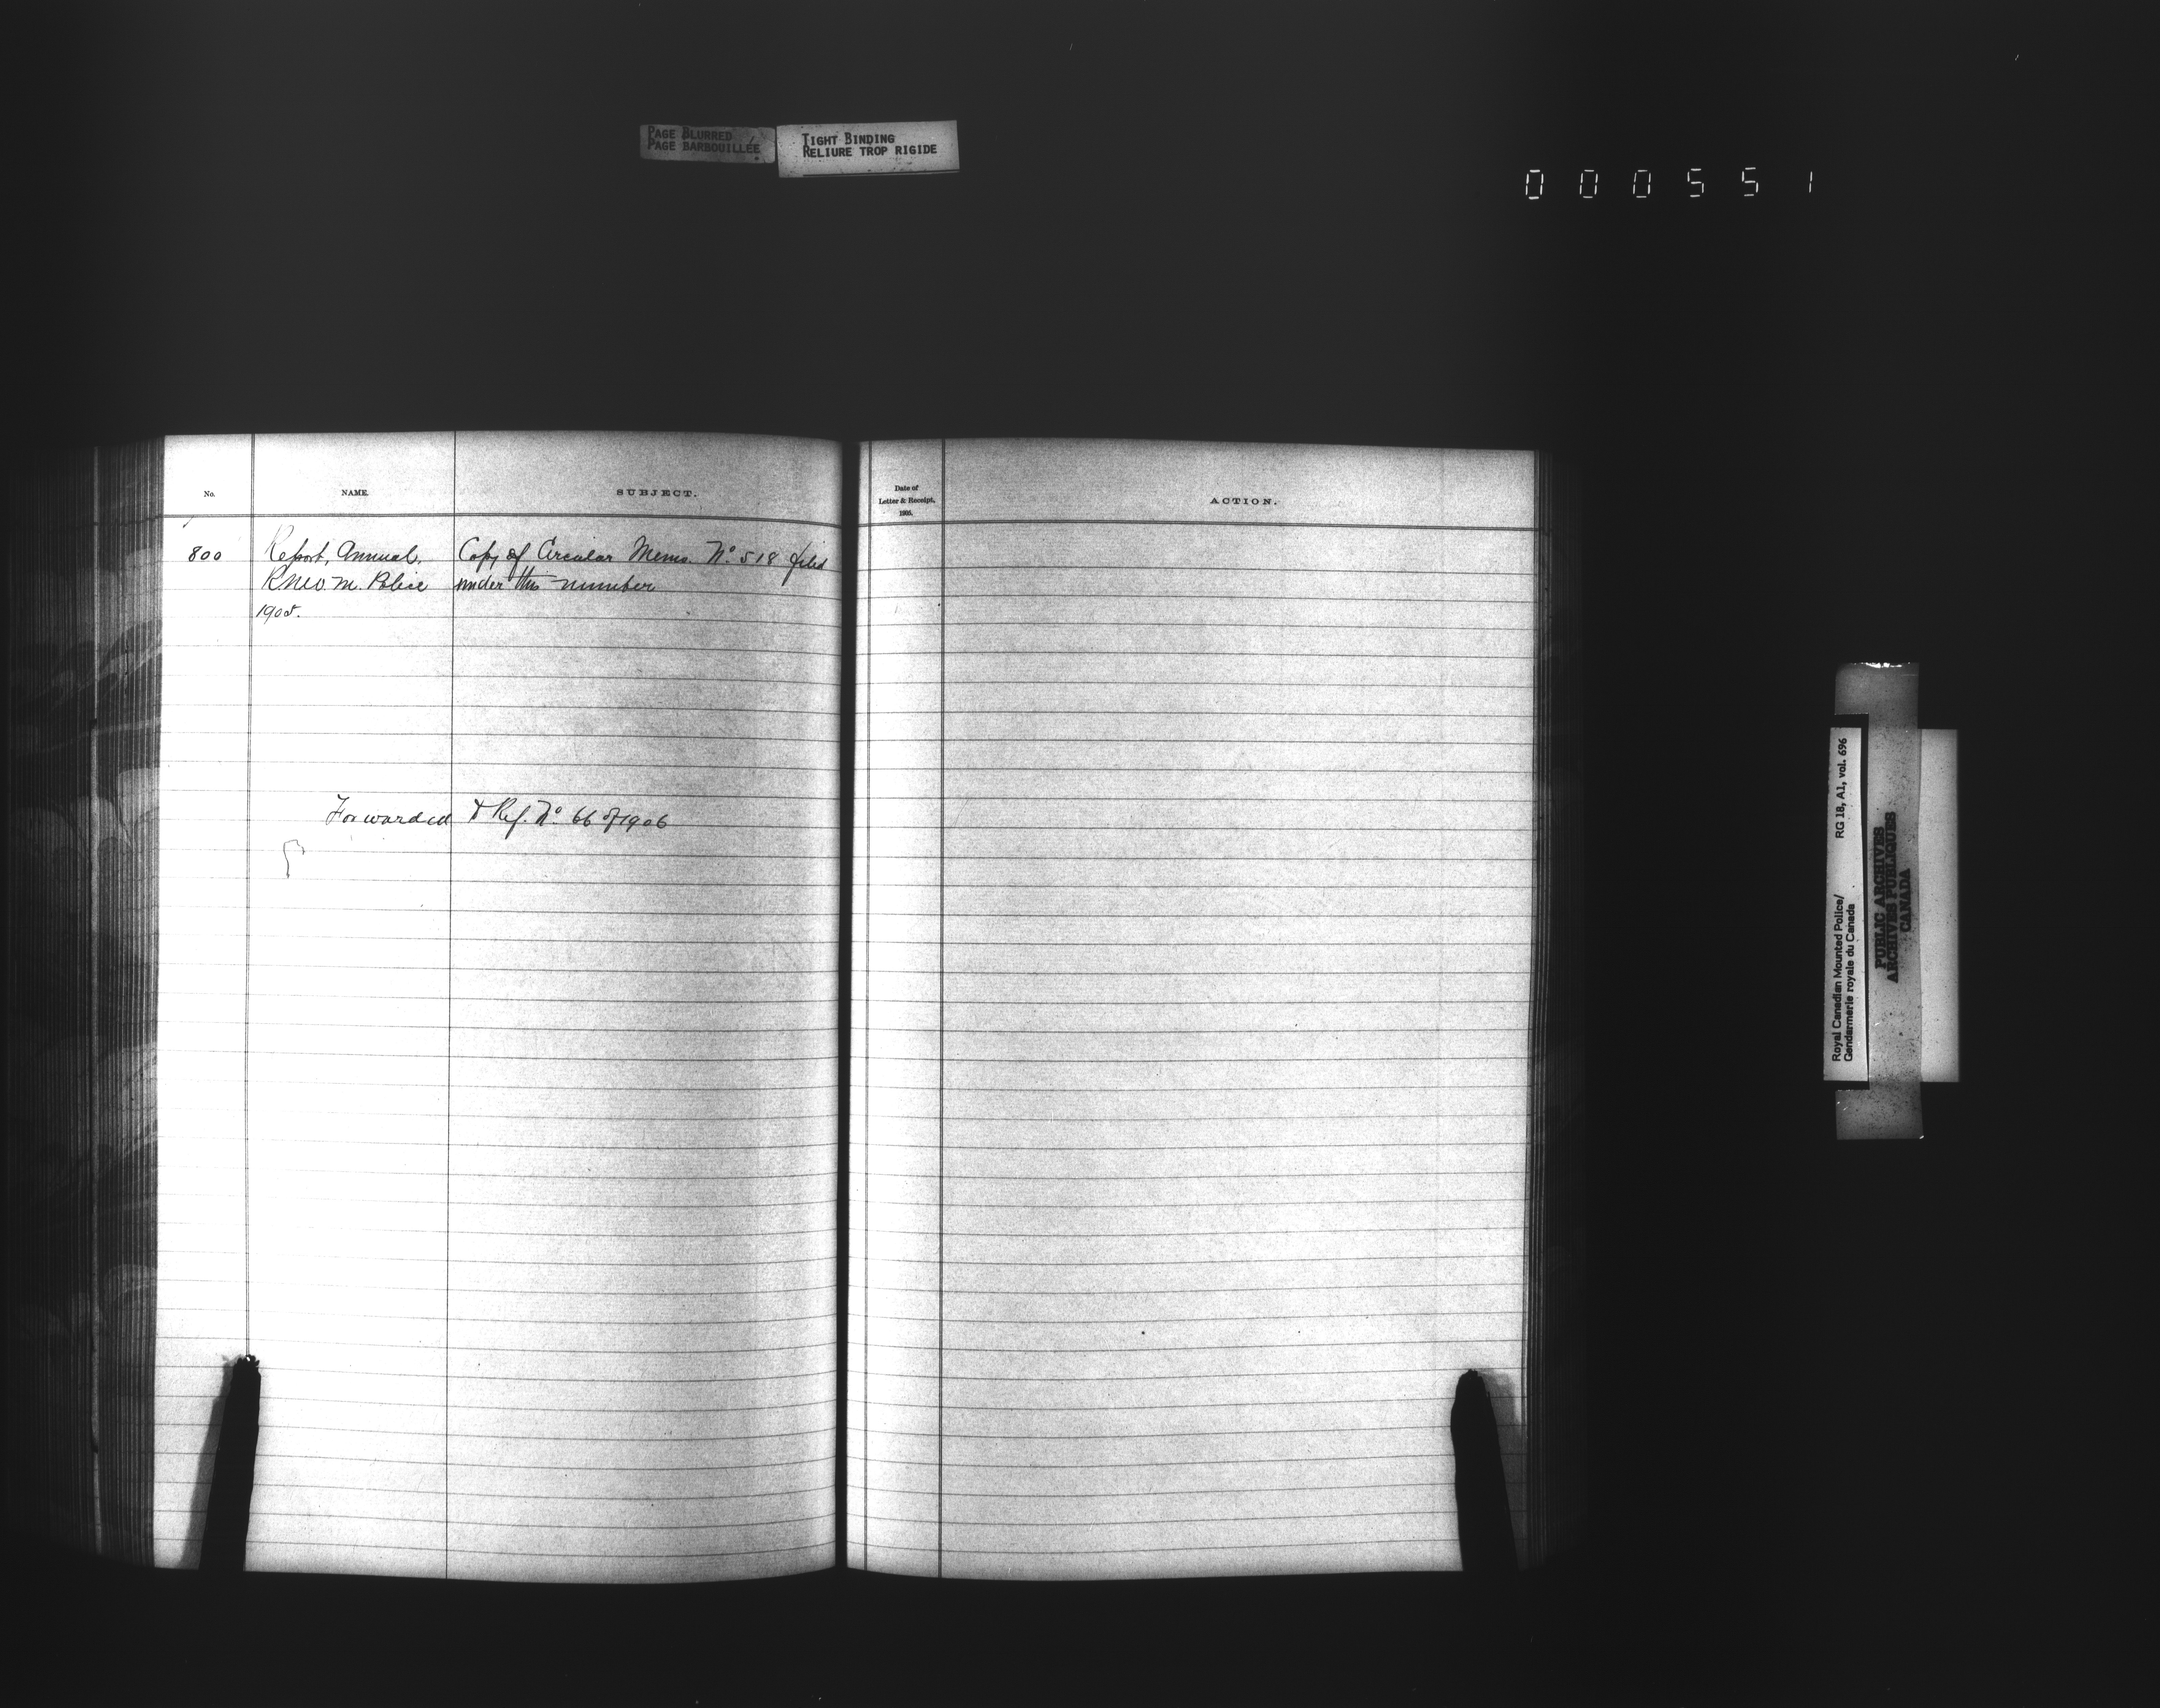 PAGE BLURRED
PAGE BARBOUILLÉE
TIGHT BINDING
RELIURE TROP RIGIDE
000551
No.
NAME.
SUBJECT.
Date of
Letter & Receipt,
1905.
ACTION.
800 Report, Annual, Copy of Circular Memo. No. 518 filed
R.N.W.M. Police under this number
1905.
Forwarded to Ref. No. 66 of 1906
Royal Canadian Mounted Police/ RG 18, A1, vol. 696
Gendarmerie royale du Canada
PUBLIC ARCHIVES
ARCHIVES PUBLIQUES
CANADA